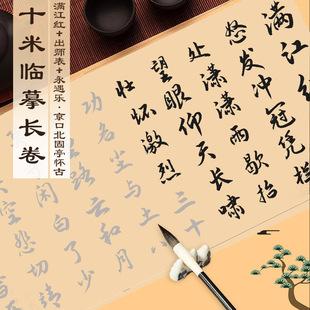 十米临摹长卷
满江红+出师表+永遇乐·京口北固亭怀古
满江红
怒发冲冠凭栏
处潇潇雨歇抬
望眼仰天长啸
壮怀激烈
三十
功名尘与土
路云和月
闲白了少
空悲切靖